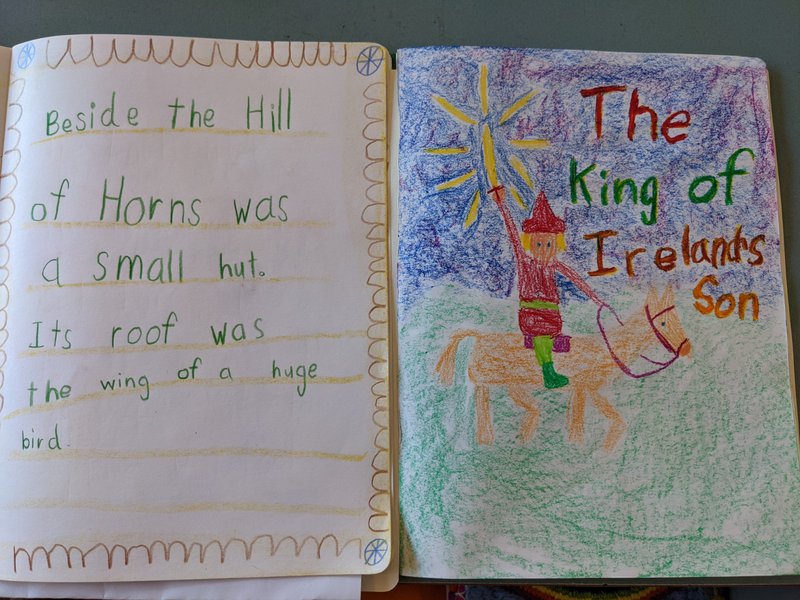 Beside the Hill
of Horns was
a small hut.
Its roof was
the wing of a huge
bird.
The
King of
Irelands
Son